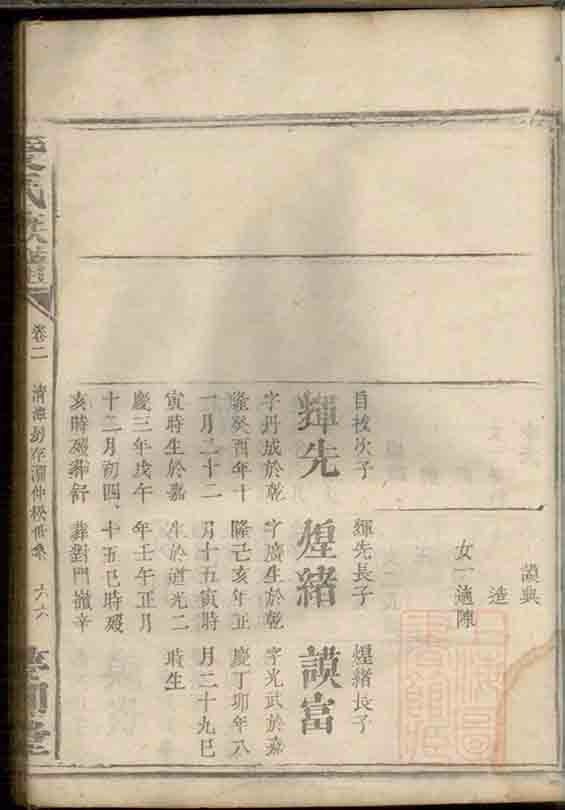 謨典
造
女一適陳
目授次子
輝先
字丹成於乾
隆癸酉年十
一月二十二
寅時生於嘉
慶三年戊午
十二月初四
亥時殁葬舒
輝先長子
煌緒
字廣生於乾
隆己亥年正
月十五寅時
生於道光二
年壬午正月
十五巳時殁
葬對門嶺辛
煌緒長子
謨富
字光武於嘉
慶丁卯年八
月二十九巳
時生
氏族譜
卷二
六六
堂